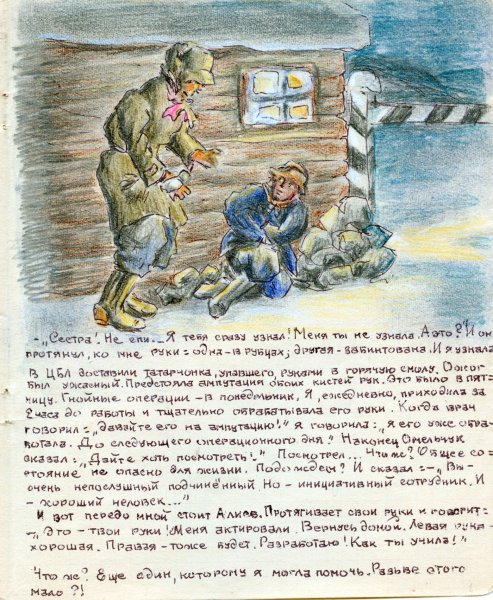 -„Сестра! Не спи... Я тебя сразу узнал! Меня ты не узнала. А это?" И он
протянул, ко мне руки: одна-в рубцах; другая-забинтована. И я узнала
В ЦБЛ доставили татарчонка, упавшего, руками в горячую смолу. Ожог
был ужасный. Предстояла ампутация обоих кистей рук. Это было в пят-
ницу. Гнойные операции-в понедельник. Я, ежедневно, приходила за
2 часа до работы и тщательно обрабатывала его руки. Когда врач
говорил: „давайте его на ампутацию!" я говорила: „я его уже обра-
ботала. До следующего операционного дня." Наконец Омельчук
сказал: „Дайте хоть посмотреть!" Посмотрел... Что ж? Общее со-
стояние не опасно для жизни. Подождем? И сказал:-„Вы-
очень непослушный подчинённый. Но-инициативный сотрудник. И
-хороший человек..."
И вот передо мной стоит Алиев. Протягивает свои руки и говорит:
-„Это-твои руки! Меня актировали. Вернусь домой. Левая рука-
хорошая. Правая-тоже будет. Разработаю! Как ты учила!"
Что ж? Еще один, которому я могла помочь. Разьве этого
мало?!